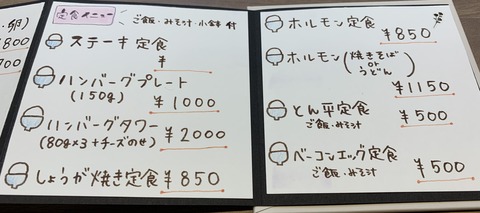 ・卵)
800
700
定食メニュー
ご飯・みそ汁・小鉢 付
ステーキ定食
¥
ハンバーグプレート
(150g) ¥1000
ハンバーグタワー
(80g×3+チーズのせ) ¥2000
しょうが焼き定食 ¥850
ホルモン定食
¥850
ホルモン(焼きそば
or
うどん)
¥1150
とん平定食
ご飯・みそ汁 ¥500
ベーコンエッグ定食
ご飯・みそ汁 ¥500